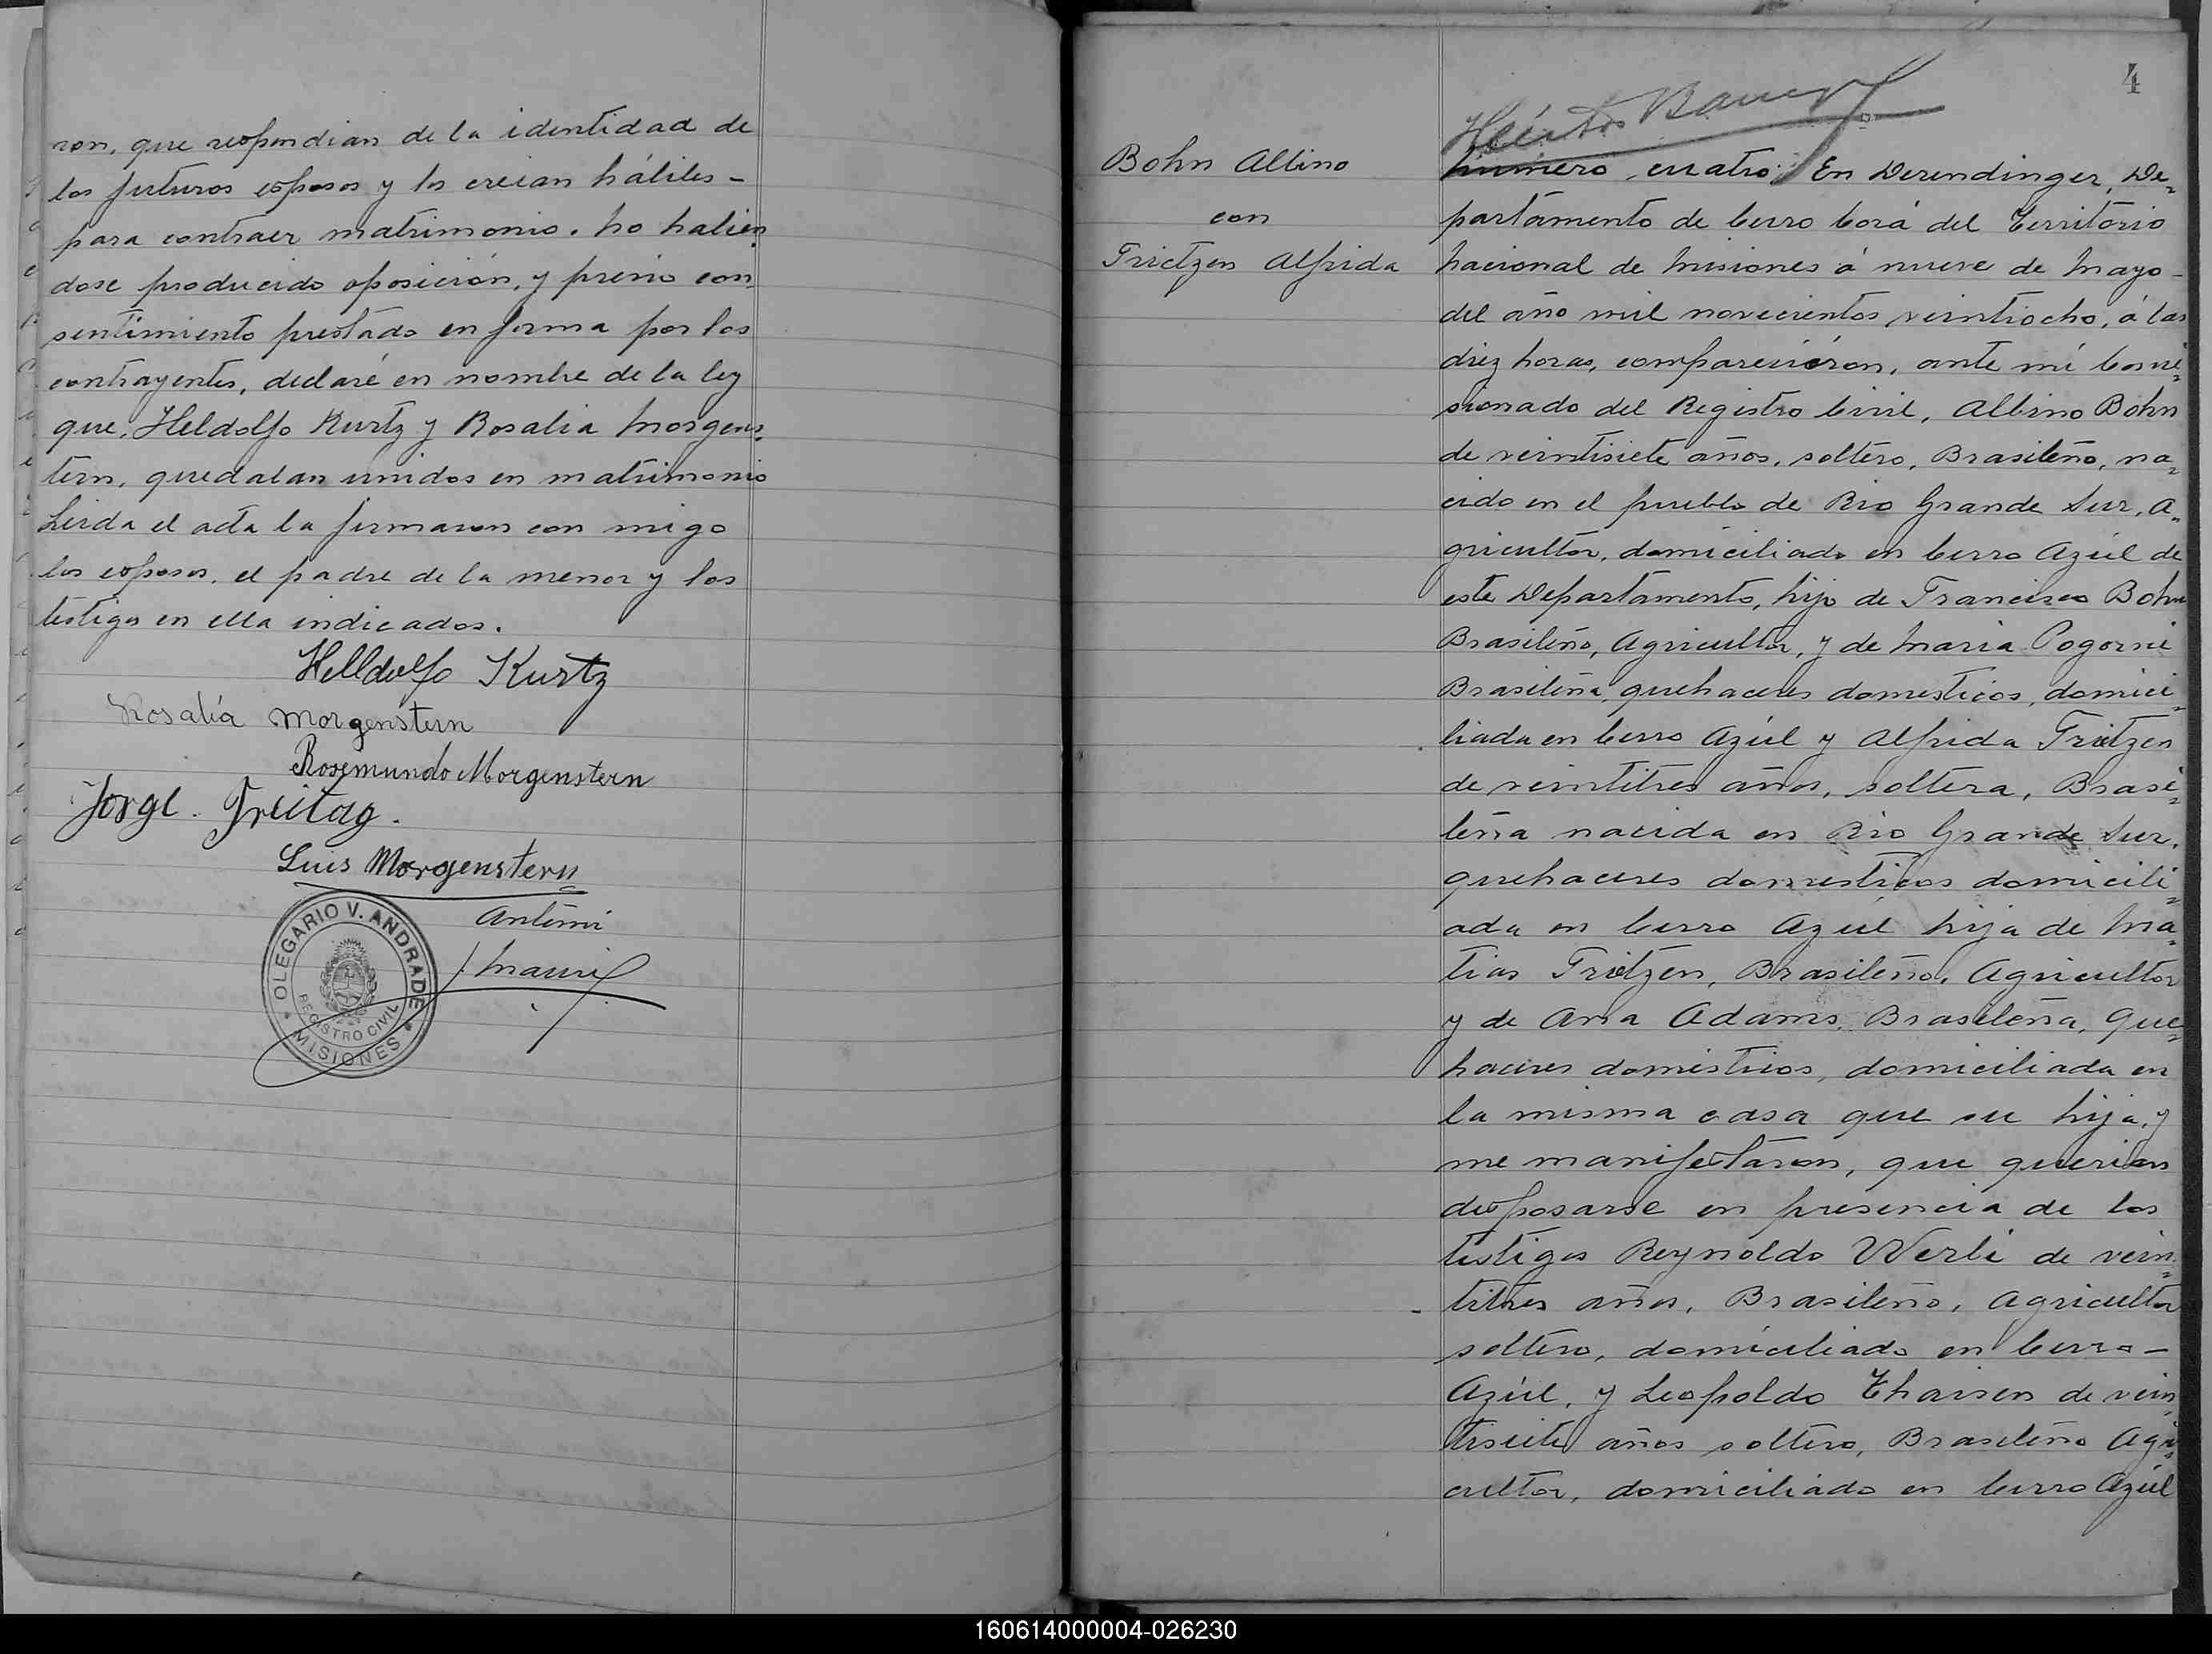 ron, que respondian de la identidad de
los futuros esposos y los creian hábiles -
para contraer matrimonio. No habien
dose producido oposición, y previo con
sentimiento prestado en forma por los
contrayentes, declaré en nombre de la ley
que, Heldolfo Kurtz y Rosalia Morgens
tern, quedaban unidos en matrimonio
Leida el acta la firmaron con migo
los esposos, el padre de la menor y los
testigos en ella indicados.
Helldolfo Kurtz
Rosalía Morgenstern
Rosemundo Morgenstern
Jorge. Freitag.
Luis Morgenstern
Antemi
OLEGARIO V. ANDRADE
REGISTRO CIVIL
MISIONES
4
Bohn Albino
con
Trietzen Alfrida
Número cuatro: En Derendinger, De=
partamento de Cerro Corá del Territorio
Nacional de Misiones á nueve de Mayo -
del año mil novecientos veintiocho, á las
diez horas, comparecieron, ante mi Comi=
sionado del Registro Civil, Albino Bohn
de veintisiete años, soltero, Brasileño, na=
cido en el pueblo de Rio Grande Sur, A=
gricultor, domiciliado en Cerro Azúl de
este Departamento, hijo de Francisco Bohn
Brasileño, Agricultor, y de Maria Pogorni
Brasileña, quehaceres domesticos, domici=
liada en Cerro Azúl y Alfrida Trietzen
de veintitres años, soltera, Brasi=
leña nacida en Rio Grande Sur,
quehaceres domesticos domicili=
ada en Cerro Azúl hija de Ma=
tias Trietzen, Brasileño, Agricultor
y de Ana Adams, Brasileña, Que=
haceres domésticos, domiciliada en
la misma casa que su hija, y
me manifestaron, que querian
desposarse en presencia de los
testigos Reynoldo Werbi de vein=
titres años, Brasileño, Agricultor
soltero, domiciliado en Cerro -
Azúl, y Leopoldo Tharsen de vein=
tisiete años soltero, Brasileño Agri=
cultor, domiciliado en Cerro Azúl
160614000004-026230